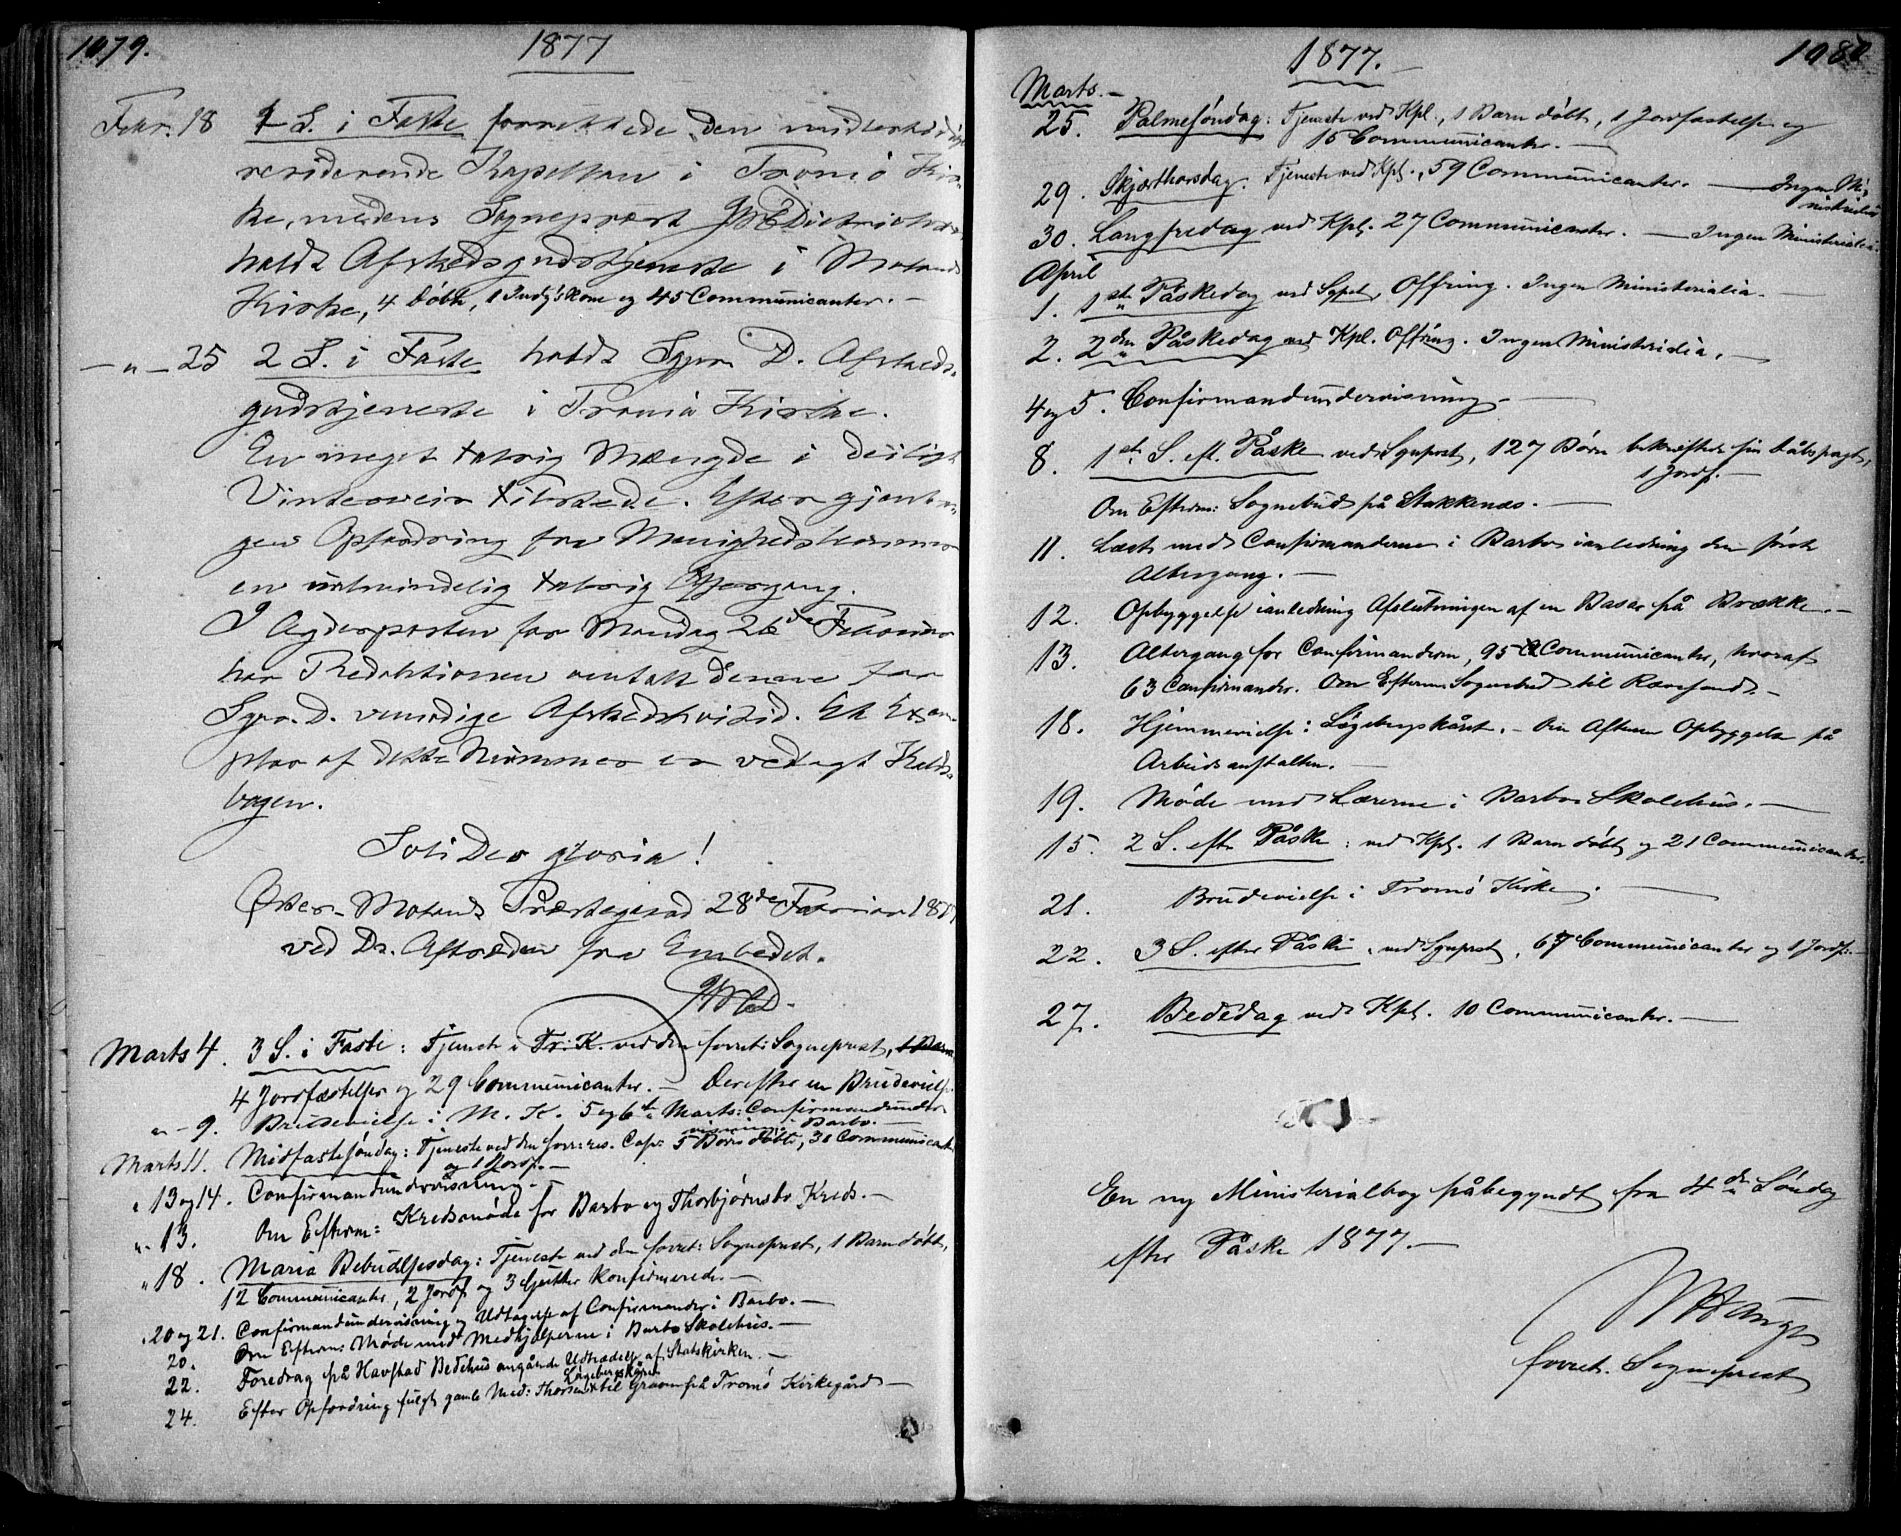 1079.
1877
Febr. 18 1 S. i Faste forrettede den midlertidige
residerende Kapellan i Tromö Kir-
ke, medens Sognepræst Dietrichson
holdt Afskedsgudstjeneste i Molands
Kirke, 4 døbte, 1 Indg. Kone og 45 Communicanter. –
— „ — 25 2 S. i Faste holdt Sgpr. D. Afskeds-
gudstjeneste i Tromö Kirke.
En meget talrig Mængde i deiligt
Vinterveir tilstede. Efter gjent-
gen Opfordring fra Menigheds
en talrig Offergang.
I Agderposten for Mandag 26de Februar
har Redaktionen omtalt denne
Sgpr. D. Afsked. Et Exem-
plar af dette Nummer er vedlagt Kalds-
bogen.
Soli Deo gloria!
Øster-Molands Præstegaard 28de Februar 1877
ved Afträden fra Embedet.
Marts 4. 3 S. i Faste: Tjeneste i Tr. K. ved den forret: Sogneprest, 1 Barn
4 Jordfæstelser og 29 Communicanter. – Derefter en Brudevielse.
„ - 9. Brudevielse i M. K. 5 og 6te Marts: Confirmandunder-
visning i Barbo. –
Marts 11. Midfastesöndag: Tjeneste ved den forr: res. Cap: 5 Börn döbte, 30 Communicanter
og 1 Jordf. –
„ 13 og 14. Confirmandundervisning. –
„ - 13. Om Efterm: Kredsmöde for Barbo og Thorbjørnsbo Kreds. –
„ 18. Maria Bebudelsesdag: Tjeneste ved den forret: Sogneprest, 1 Barn döbt,
12 Communicanter, 2 Jordf. og 3 Gutter konfirmerede. –
„ 20 og 21. Confirmandundervisning og Udtagelse af Confirmander i Barbo. –
20. Om Efterm: Möde med Medhjælperne i Barbo Skolehus. –
22. Foredrag på Havstad Bedehus angående Udtrædelse af Statskirken. –
24. Efter Opfordring fulgt gamle Mad: Thorsen til Graven på Tromö Kirkegård –
1877. –
1080
Marts. –
25. Palmesöndag: Tjeneste ved Kpl., 1 Barn döbt, 1 Jordfæstelse og
15 Communicanter. –
29. Skjærthorsdag: Tjeneste ved Kpl., 59 Communicanter. — Ingen Mi-
nisterialia
30. Langfredag ved Kpl. 27 Communicanter. — Ingen Ministerialia.
April
1. 1ste Påskedag ved Sgpst, Offring. Ingen Ministerialia. –
2. 2den Påskedag ved Kpl. Offring. Ingen Ministerialia. –
4 og 5. Confirmandundervisning. –
8. 1ste S. eft. Påske ved Sgnprst, 127 Börn bekræftede sin Dåbspagt,
1 Jordf. –
Om Efterm: Sognebud på Stokkenæs. –
11. Læst med Confirmanderne i Barbo i anledning den förste
Altergang. –
12. Opbyggelse i anledning Afslutningen af en Basar på Brække. –
13. Altergang for Confirmanderne, 95 Communicanter, hvoraf
63 Confirmander. Om Efterm. Sognebud til Rævesand. –
18. Hjemmevielse i Lögebergskåret. – Om Aftenen Opbyggelse på
Arbeidsanstalten. –
19. Möde med Lærerne i Barbo Skolehus. –
15. 2 S. efter Påske: ved Kpl. 1 Barn döbt og 21 Communicanter.
21. Brudevielse i Tromö Kirke. –
22. 3 S. efter Påske, ved Sgnprst, 67 Communicanter og 1 Jordf. –
27. Bededag ved Kpl. 10 Communicanter. –
En ny Ministerialbog påbegyndt fra 4de Söndag
efter Påske 1877. –
forret. Sogneprest